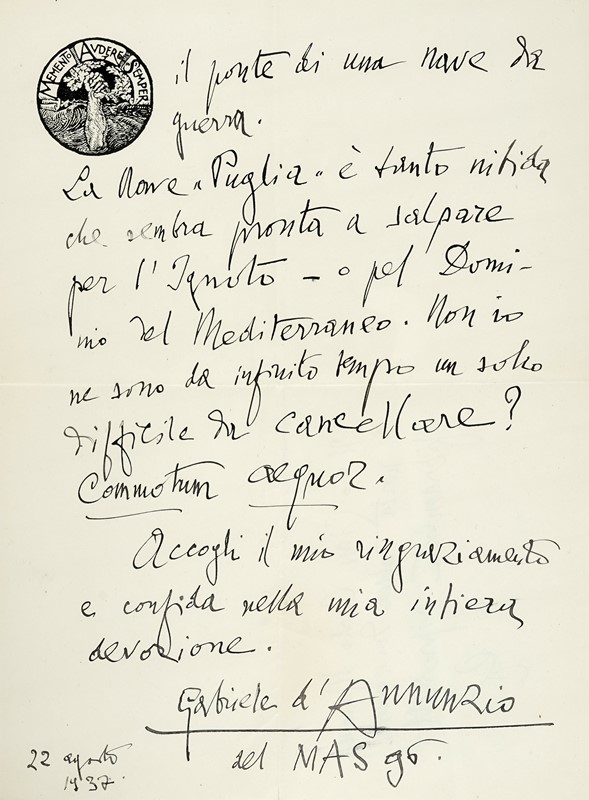 MEMENTO AUDERE SEMPER
il ponte di una nave da
guerra.
La Nave "Puglia" è tanto nitida
che sembra pronta a salpare
per l'Ignoto – o pel Domi-
nio del Mediterraneo. Non io
ne sono da infinito tempo un solco
difficile da cancellare?
Commotum aequor.
Accogli il mio ringraziamento
e confida nella mia intiera
devozione.
Gabriele d'Annunzio
del MAS 96.
22 agosto
1937.